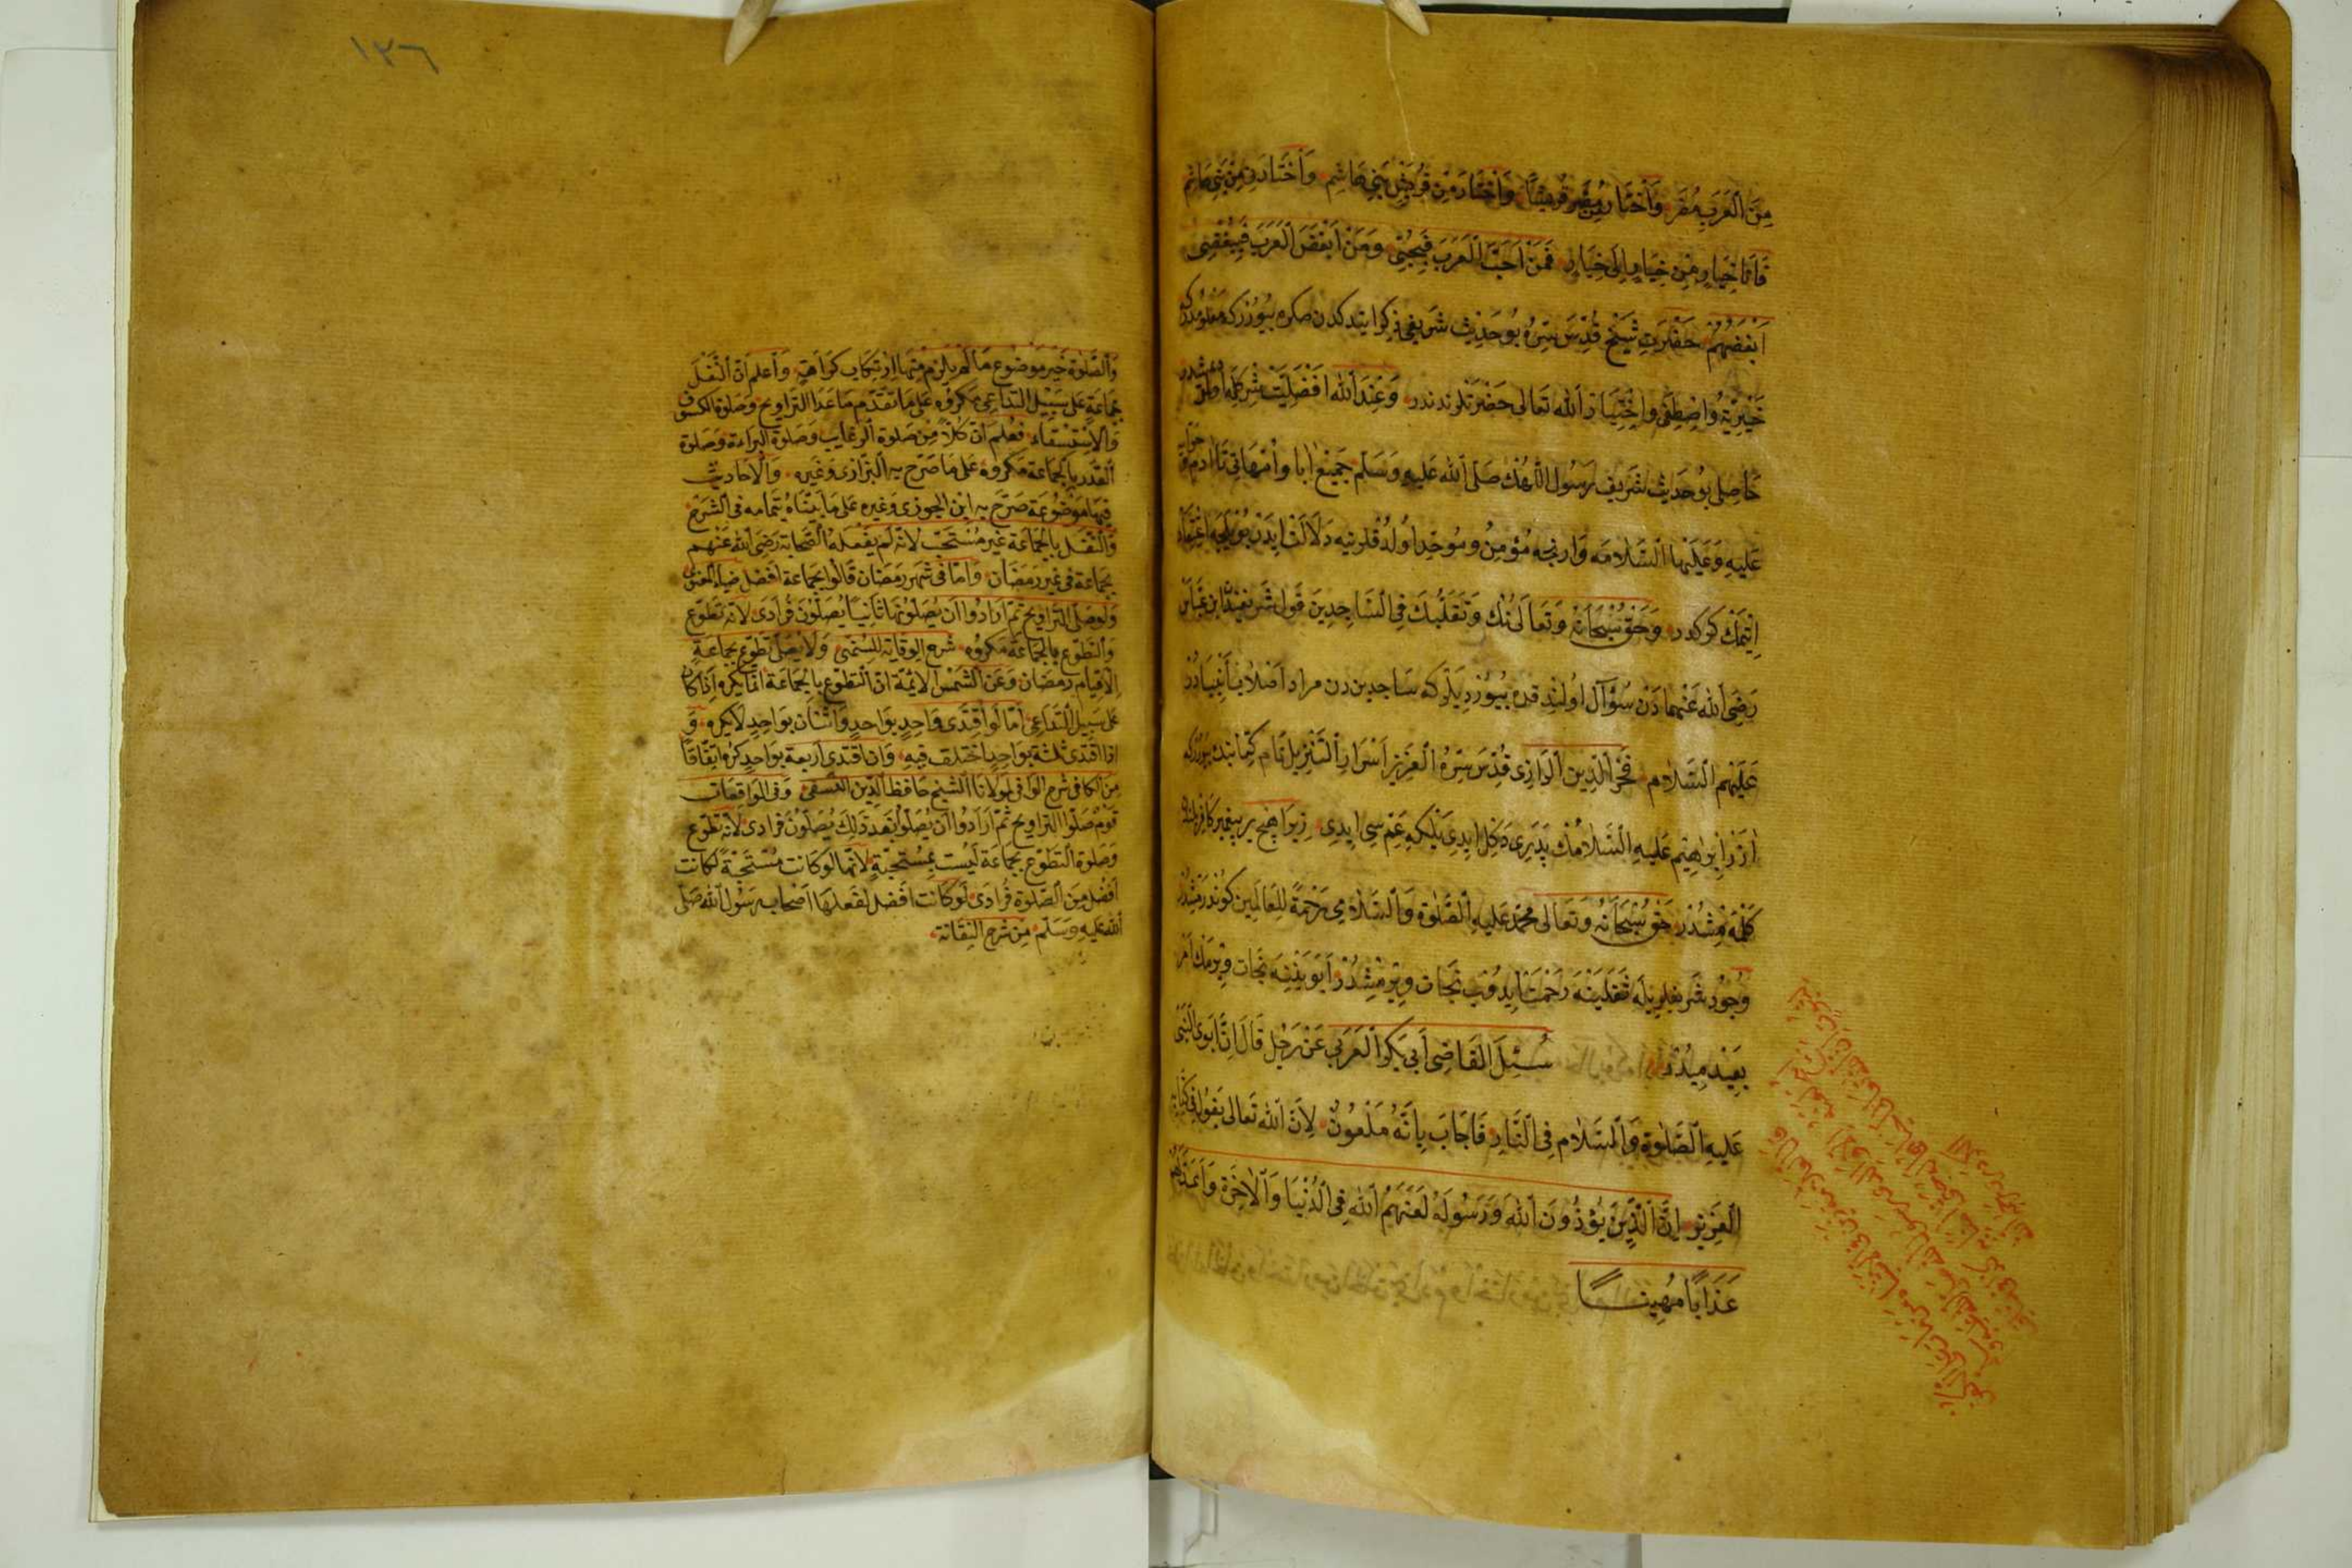 مِنَ الْعَرَبِ مُضَرَ وَاخْتَارَ مِنْ مُضَرَ قُرَيْشًا وَاخْتَارَ مِنْ قُرَيْشٍ بَنِي هَاشِمٍ وَاخْتَارَنِي مِنْ بَنِي هَاشِمٍ
فَاَنَا خِيَارٌ مِنْ خِيَارٍ اِلَى خِيَارٍ فَمَنْ اَحَبَّ الْعَرَبَ فَبِحُبِّي وَمَنْ اَبْغَضَ الْعَرَبَ فَبِبُغْضِي
اَبْغَضَهُمْ حَضْرَتِ شَيْخ قُدِّسَ سِرُّهُ بُو حَدِيثِ شَرِيفِي ذِكْر ايتدكدن صكره بيورركه معلومدركه
خَيْرِيَّة وَاصْطِفَى وَاخْتِيَار اَللّٰه تَعَالَى حضرتلرندندر وَعِنْدَ اللّٰه اَفْضَلِيَّتْ شِرْكَلَه اولمز
حَاصِلِ بُو حَدِيثِ شَرِيف رَسُولُ اللّٰهك صَلَّى اللّٰه عَلَيْهِ وَسَلَّم جَمِيعِ ابا وامهاتي تا ادم
عَلَيْهِ وَعَلَيْهَا السَّلَامه وارنجه مُؤْمِن وموحد اولدقلرينه دلالت ايدر بويلجه اعتقاد
ايتمك كركدر وحق سبحانه وتعالى نك وَتَقَلُّبَكَ فِي السَّاجِدِينَ قول شريفيده ابن عباس
رَضِيَ اللّٰه عَنْهُمَادن سؤال اولندقده بيورديلركه ساجديندن مراد اصلاب انبيادر
عَلَيْهِمُ السَّلَام فَخْرُ الدِّينِ الرَّازِي قُدِّسَ سِرُّهُ الْعَزِيز اَسْرَارُ التَّنْزِيل نام كتابنده بيورركه
ازر اِبْرَاهِيم عَلَيْهِ السَّلَامُك پدري دكل ايدي بلكه عمسي ايدي زيرا هيچ بر پيغمبر كافردن
كلمه مشدر حق سبحانه وتعالى محمد عَلَيْهِ الصَّلٰوة وَالسَّلَامي رَحْمَةً لِلْعَالَمِين كوندرمشدر
وجود شريفلريله رحمت ايدوب نجات ويرمشدر ابوينينه نجات ويرمك امر
بعيدميدر سُئِلَ الْقَاضِي أَبِي بَكْرِ الْعَرَبِي عَنْ رَجُلٍ قَالَ اِنَّ اَبَوَيِ النَّبِيِّ
عَلَيْهِ الصَّلٰوةِ وَالسَّلَام فِي النَّارِ فَاَجَابَ بِاَنَّهُ مَلْعُونٌ لِاَنَّ اللّٰه تَعَالَى يَقُولُ فِي كِتَابِهِ
الْعَزِيزِ اِنَّ الَّذِينَ يُؤْذُونَ اللّٰهَ وَرَسُولَهُ لَعَنَهُمُ اللّٰهُ فِي الدُّنْيَا وَالْاٰخِرَةِ وَاَعَدَّ لَهُمْ
عَذَابًا مُهِينًا
١٣٦
وَالصَّلٰوة خَيْر مَوْضُوع مَا لَمْ يلزم مِنْهَا اِرْتِكَاب كَرَاهَةٍ وَاعلم اَنَّ النَّفْلَ
بجماعةٍ عَلَى سَبِيل التداعي مَكْرُوه عَلَى مَا تَقَدَّمَ مَا عَدَا التراويح وصلوة الكسوف
والاستسقاء فعلم اَنَّ كلا من صلوة الرغايب وصلوة البراءة وصلوة
القدر بالجماعة مكروهة على ما صرح به البزازي وغيره والاحاديث
فيها موضوعة صرح به ابن الجوزي وغيره على ما بيناه بتمامه في الشرح
والنفل بالجماعة غير مستحب لانه لم يفعله الصحابة رضي الله عنهم
بجماعة في غير رمضان واما في شهر رمضان قالوا بجماعة افضل ضياء المعنوي
ولو صلى التراويح ثم ارادوا ان يصلوها ثانيا يصلون فرادى لانه تطوع
والتطوع بالجماعة مكروه شرح الوقاية للشمني ولا يصلى تطوع بجماعة
الا قيام رمضان وعن الشمس الائمة ان التطوع بالجماعة انما يكره اذا كان
على سبيل التداعي اما لو اقتدى واحد بواحد واثنان بواحد لا يكره و
اذا اقتدى ثلثة بواحد اختلف فيه وان اقتدى اربعة بواحد كره اتفاقا
من الكافي شرح الوافي لمولانا الشيخ حافظ الدين النسفي وفي الواقعات
قوم صلوا التراويح ثم ارادوا ان يصلوا بعد ذلك يصلون فرادى لانه تطوع
وصلوة التطوع بجماعة ليست بمستحبة لانها لو كانت مستحبة لكانت
افضل من الصلوة فرادى لو كانت افضل لفعلها اصحاب رسول الله صلى
الله عليه وسلم من شرح النقاية